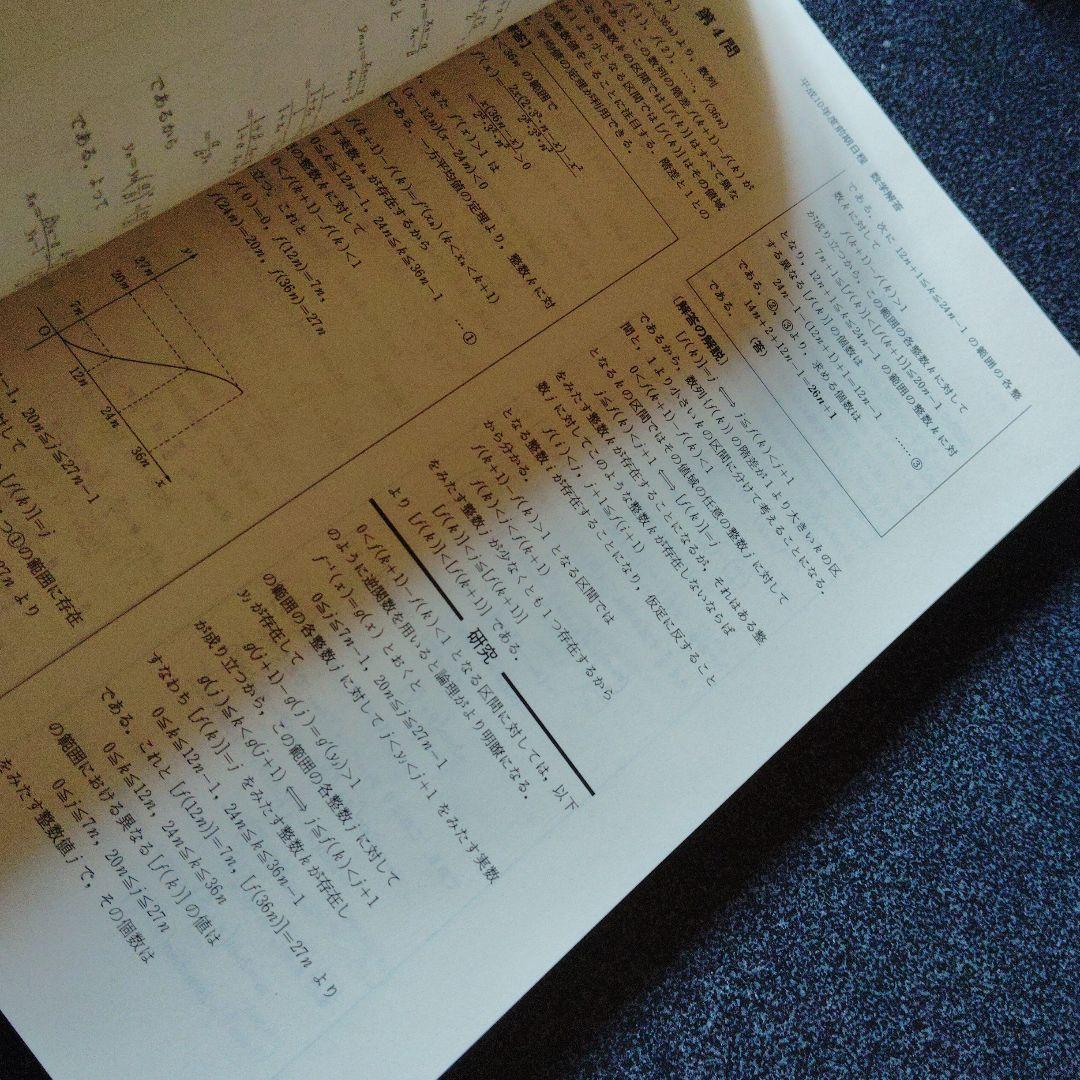 平成10年度前期日程 数学解答
第4問
−36n)より，数列
f(1), f(2), …, f(36n)
この数列の階差 f(k+1)−f(k) が
より小となる区間では [f(k)] はその値域
の整数値をとることに注目する．階差と1との
平均値の定理が利用できる．
<36n の範囲で
また f′(x)>1 は
(x−12n)(x−24n)<0
である．一方平均値の定理より，整数kに対
f(k+1)−f(k)=f′(xk) (k<xk<k+1)
す実数xkが存在するから
0≦k≦12n−1, 24n≦k≦36n−1
の整数kに対して
0<f(k+1)−f(k)<1 ……①
立つ．これと
f(0)=0, f(12n)=7n,
f(24n)=20n, f(36n)=27n
y
27n
20n
7n
O
12n
24n
36n
x
−1, 20n≦j≦27n−1
対して
[f(k)]=j
つ①の範囲に存在
=27n より
である．次に 12n+1≦k≦24n−1 の範囲の各整
数kに対して
f(k+1)−f(k)>1 ……③
が成り立つから，この範囲の各整数kに対して
7n+1≦[f(k)]<[f(k+1)]≦20n−1
となり，12n+1≦k≦24n−1 の範囲の整数kに対
する異なる [f(k)] の値は
24n−1−(12n+1)+1=12n−1
である．②，③より，求める個数は
14n+2+12n−1=26n+1
である． （答）
〔解答の解説〕
[f(k)]=j ⟺ j≦f(k)<j+1
であるから，数列 {f(k)} の階差が1より大きいkの区
間と，1より小さいkの区間に分けて考えることになる．
0<f(k+1)−f(k)<1
となるkの区間ではその値域の任意の整数jに対して
j≦f(k)<j+1 ⟺ [f(k)]=j
をみたす整数kが存在することになるが，それはある整
数jに対してこのような整数kが存在しないならば
f(i)<j, j+1≦f(i+1)
となる整数iが存在することになり，仮定に反すること
から分かる．
f(k+1)−f(k)>1 となる区間では
f(k)<j<f(k+1)
をみたす整数jが少なくとも1つ存在するから
[f(k)]<j≦[f(k+1)]
より [f(k)]<[f(k+1)] である．
研究
0<f(k+1)−f(k)<1 となる区間に対しては，以下
のように逆関数を用いると論理がより明瞭になる．
f⁻¹(x)=g(x) とおくと
0≦j≦7n−1, 20n≦j≦27n−1
の範囲の各整数jに対して j<yj<j+1 をみたす実数
yjが存在して
g(j+1)−g(j)=g′(yj)>1
が成り立つから，この範囲の各整数jに対して
g(j)≦k<g(j+1) ⟺ j≦f(k)<j+1
すなわち [f(k)]=j をみたす整数kが存在し
0≦k≦12n−1, 24n≦k≦36n−1
である．これと [f(12n)]=7n, [f(36n)]=27n より
0≦k≦12n, 24n≦k≦36n
の範囲における異なる [f(k)] の値は
0≦j≦7n, 20n≦j≦27n
をみたす整数値jで，その個数は
であるから
である．よって